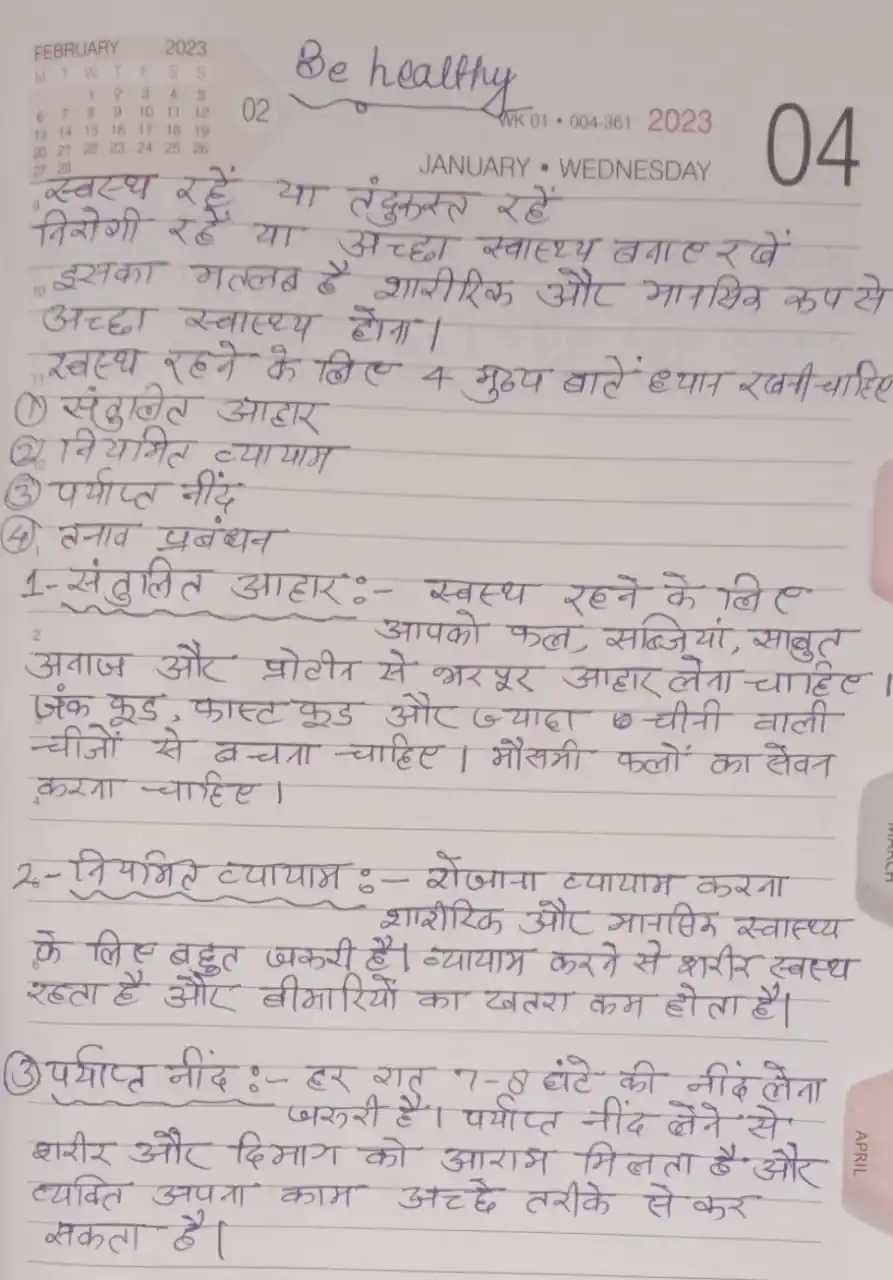 FEBRUARY 2023
M T W T F S S
1 2 3 4 5
6 7 8 9 10 11 12
13 14 15 16 17 18 19
20 21 22 23 24 25 26
27 28
02
Be healthy
WK 01 • 004-361 2023
04
JANUARY • WEDNESDAY
स्वस्थ रहें या तंदुरुस्त रहें
निरोगी रहें या अच्छा स्वास्थ्य बनाए रखें
इसका मतलब है शारीरिक और मानसिक रूप से
अच्छा स्वास्थ्य होना।
स्वस्थ रहने के लिए 4 मुख्य बातें ध्यान रखनी चाहिए
① संतुलित आहार
② नियमित व्यायाम
③ पर्याप्त नींद
④ तनाव प्रबंधन
1- संतुलित आहार :- स्वस्थ रहने के लिए
आपको फल, सब्जियां, साबुत
अनाज और प्रोटीन से भरपूर आहार लेना चाहिए।
जंक फूड, फास्ट फूड और ज्यादा चीनी वाली
चीजों से बचना चाहिए। मौसमी फलों का सेवन
करना चाहिए।
2- नियमित व्यायाम :- रोजाना व्यायाम करना
शारीरिक और मानसिक स्वास्थ्य
के लिए बहुत जरूरी है। व्यायाम करने से शरीर स्वस्थ
रहता है और बीमारियों का खतरा कम होता है।
③ पर्याप्त नींद :- हर रात 7-8 घंटे की नींद लेना
जरूरी है। पर्याप्त नींद लेने से
शरीर और दिमाग को आराम मिलता है और
व्यक्ति अपना काम अच्छे तरीके से कर
सकता है।
MARCH
APRIL